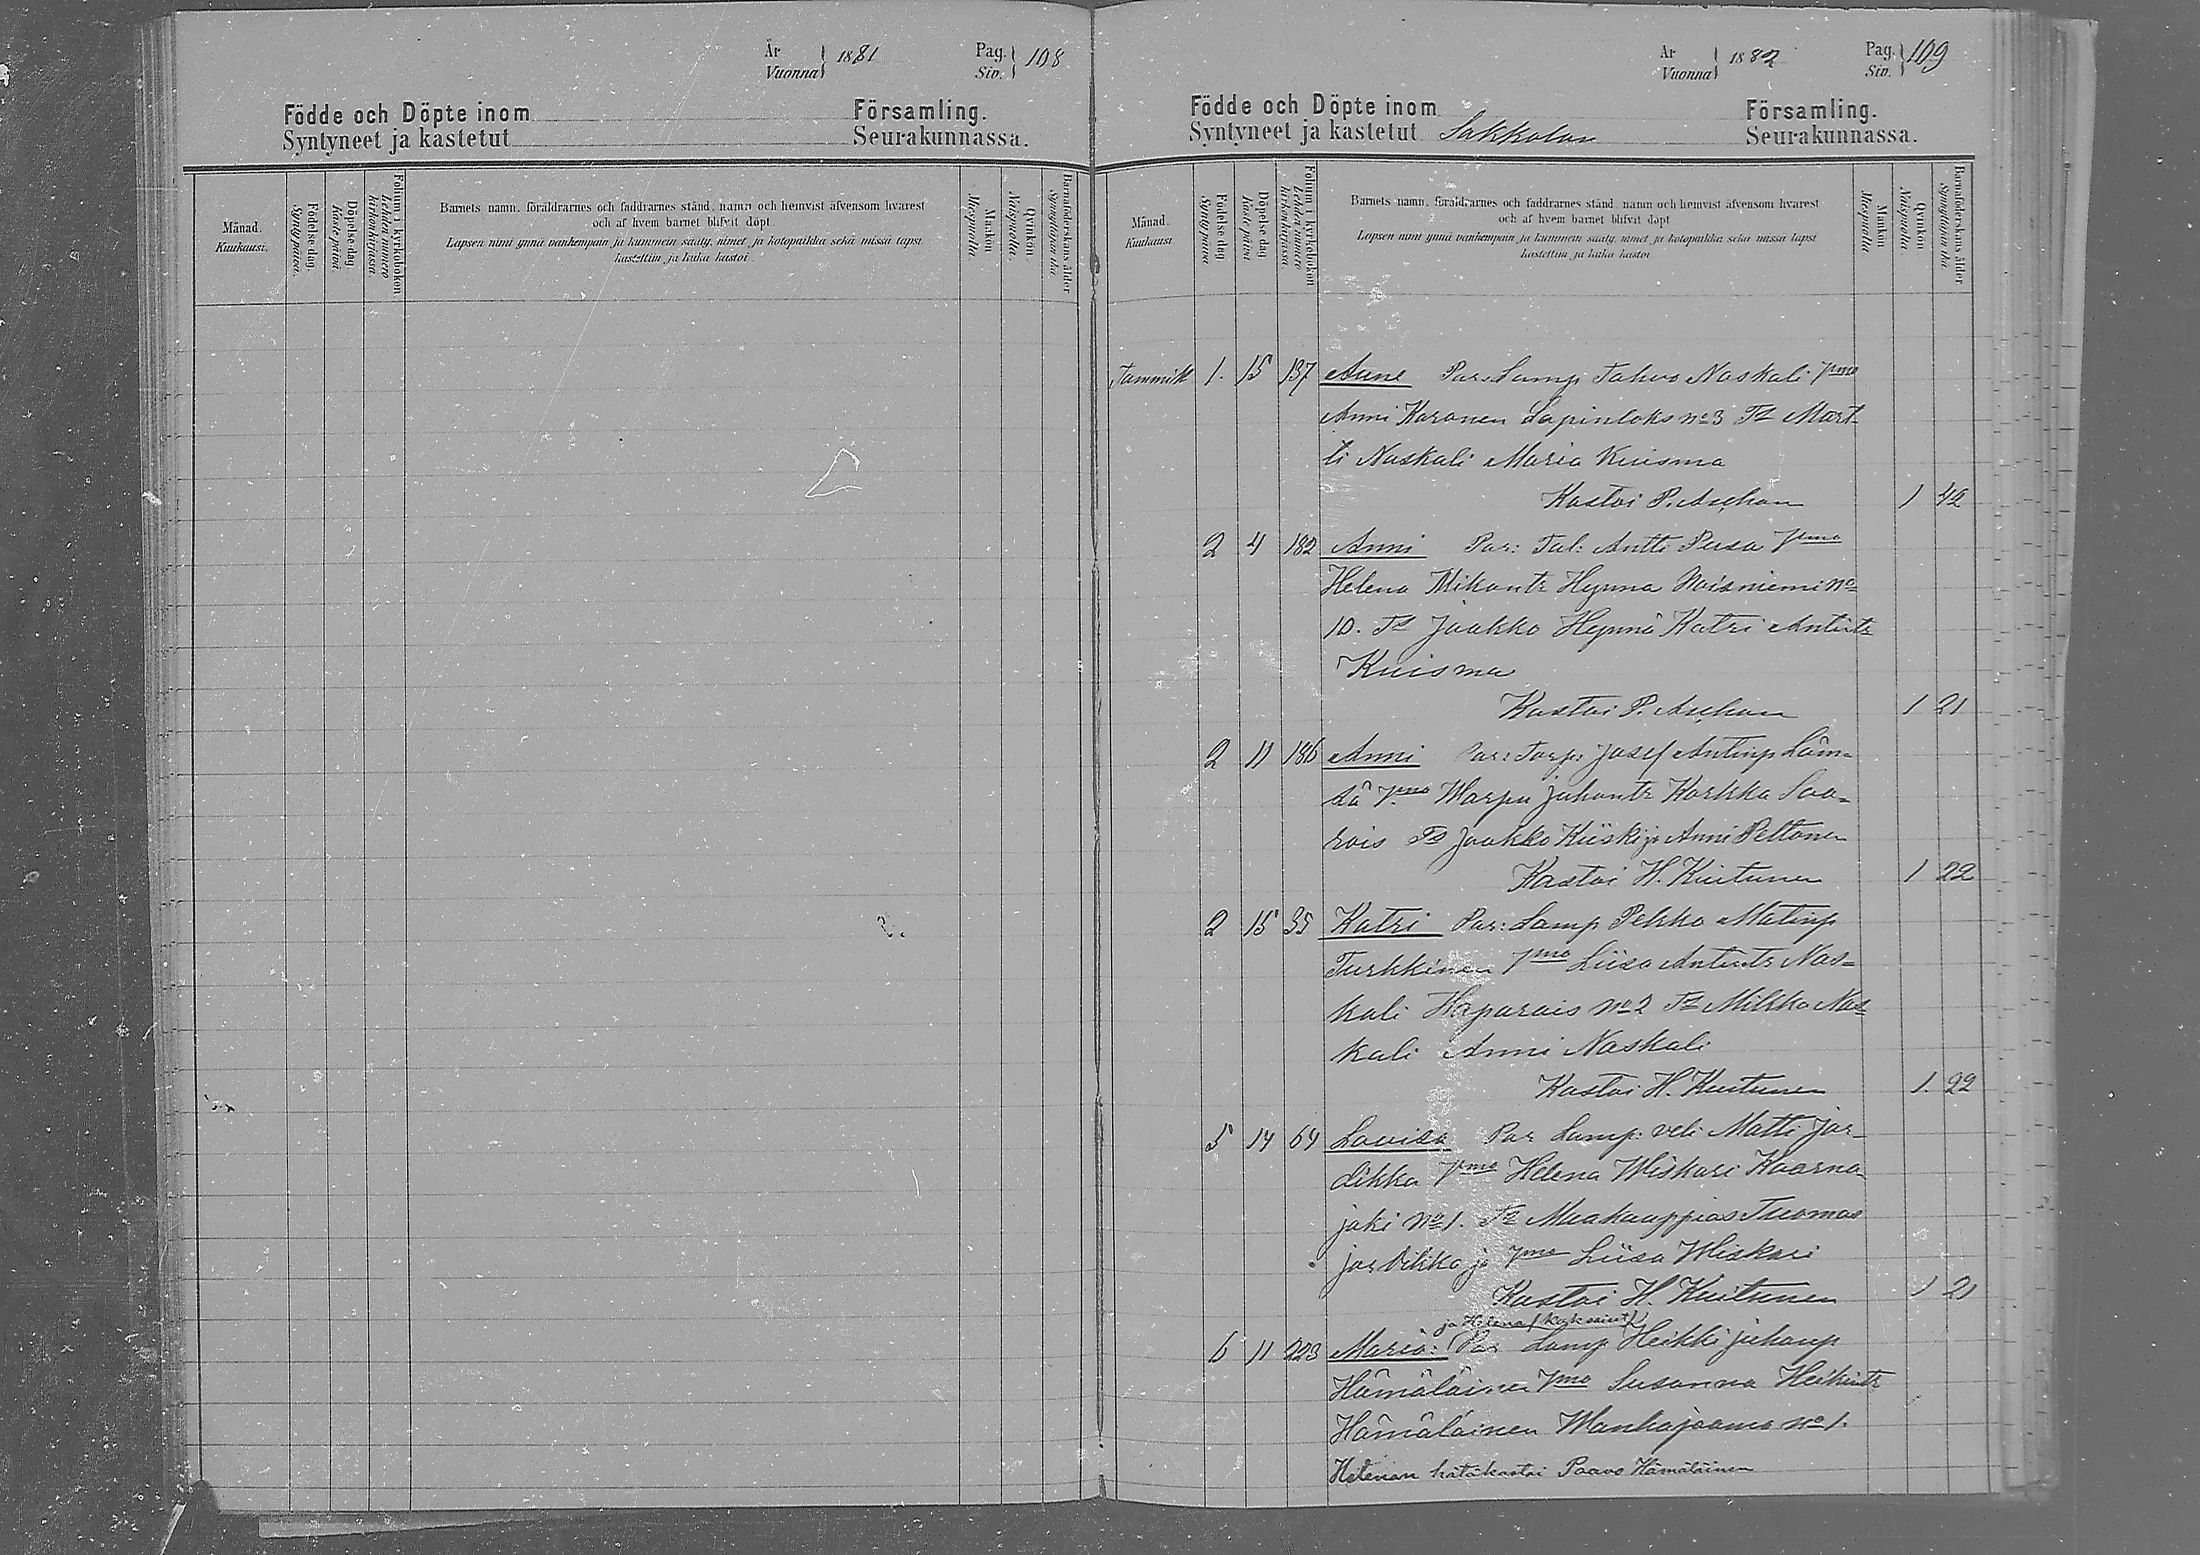 År
Vuonna 1881
Pag.
Siv. 108
Födde och Döpte inom Församling.
Syntyneet ja kastetut Seurakunnassa.
Månad.
Kuukausi.
Födelse-dag
Syntypäivä.
Döpelse-dag
Kastepäivä
Folium i kyrkoboken
Lehden numero kirkonkirjassa
Barnets namn, föräldrarnes och faddrarnes stånd, namn och hemvist äfvensom hvarest
och af hvem barnet blifvit döpt.
Lapsen nimi ynnä vanhempain ja kummein sääty, nimet ja kotopaikka sekä missä lapsi
kastettiin ja kuka kastoi.
Mankön
Miespuolia
Qvinkön.
Naispuolia.
Barnaföderskans ålder
År
Vuonna 1882
Pag.
Siv. 109
Födde och Döpte inom Församling.
Syntyneet ja kastetut Sakkolan Seurakunnassa.
Månad.
Kuukausi
Födelse-dag
Syntypäivä
Döpelse-dag
Kastepäivä
Folium i kyrkoboken
Lehden numero kirkonkirjassa
Barnets namn, föräldrarnes och faddrarnes stånd, namn och hemvist äfvensom hvarest
och af hvem barnet blifvit döpt
Lapsen nimi ynnä vanhempain ja kummein sääty, nimet ja kotopaikka sekä missä lapsi
kastettiin ja kuka kastoi
Mankön
Miespuolia.
Qvinkön.
Naispuolia.
Barnaföderskans ålder
Tammik 1. 15 137 Aune Par: Lamp: Tahvo Naskali Vmo
Anni Karonen Lapinlaks No 3 Ts Mart-
ti Naskali Maria Kuisma
Kastoi P. Aschan 1 42
2 4 182 Anni Par: Tal: Antti Pusa Vmo
Helena Mikontr Hynna Noisniemi No
10. Ts Jaakko Hynnä Katri Antintr
Kuisma
Kastoi P. Aschan 1 21
2 11 186 Anni Par: Torp: Josef Antinp Läm-
sä Vmo Warpu Juhontr Korkka Saa-
rois Ts Jaakko Kiiski ja Anni Peltonen
Kastoi H. Kuitunen 1 22
2 15 35 Katri Par: Lamp Pekka Matinp
Turkkinen Vmo Liisa Antintr Nas-
kali Haparais No 2 Ts Mikko Nas-
kali Anni Naskali
Kastoi H. Kuitunen 1. 22
5 14 64 Lovisa Par Lamp: veli Matti Jor-
dikka Vmo Helena Wiskari Kaarna
joki No 1. Ts Maakauppias Tuomas
Jordikka ja Vmo Liisa Wiskari
Kastoi H. Kuitunen 1 21
ja Helena (kaksoiset)
6 11 223 Maria: Par Lamp Heikki Juhonp
Hämäläinen Vmo Susanna Heikintr
Hämäläinen Wanhajaama No 1.
Helenan hätäkastoi Paavo Hämäläinen